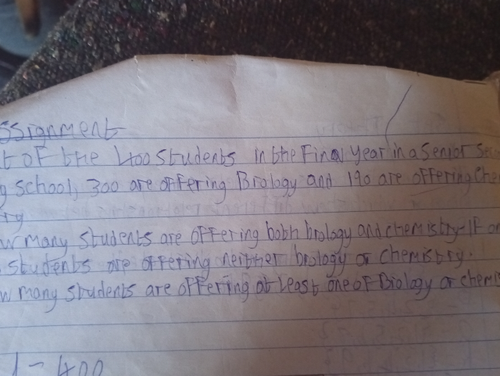 ssignment
t of the 400 students in the Final year in a Senior Se
g school, 300 are offering Biology and 190 are offering Che
try
ow many students are offering bobh biology and chemistry If on
students are offering neither biology or chemistry.
ow many students are offering at least one of Biology or chemi
= 400